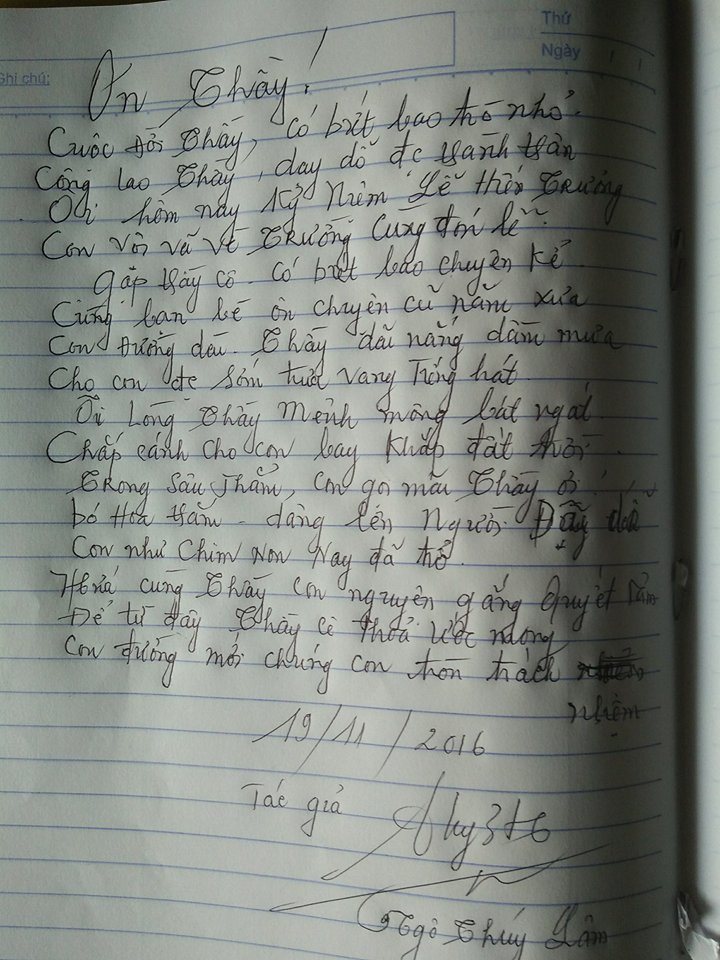 Thứ
Ngày
Ghi chú:
Ơn Thầy!
Cuộc Đời Thầy, có biết bao thơ nhỏ.
Công lao Thầy, dạy dỗ đc thành thân
Ơi hôm nay kỷ niệm Lễ Hiến Trường
Con vội vã về Trường cùng đón lễ
Gặp thầy cô. có biết bao chuyện kể
Cùng bạn bè ôn chuyện cũ năm xưa
Con đường dài. Thầy dãi nắng dầm mưa
Cho con đc sớm tươi vang Tiếng hát
Ôi Lòng Thầy mênh mông bát ngát
Chắp cánh cho con bay khắp đất trời
Trong sâu thẳm, con gọi mãi Thầy ơi!
bó Hoa thắm - dâng lên Người Dẫy dỗ
Con như chim Non Nay đã trổ
Hứa cùng Thầy con nguyện gắng Quyết Tâm
Để từ đây Thầy cô thoả ước mong
Con đường mới chúng con tròn trách
nhiệm
19/11/2016
Tác giả
Ngô Thuý Lâm